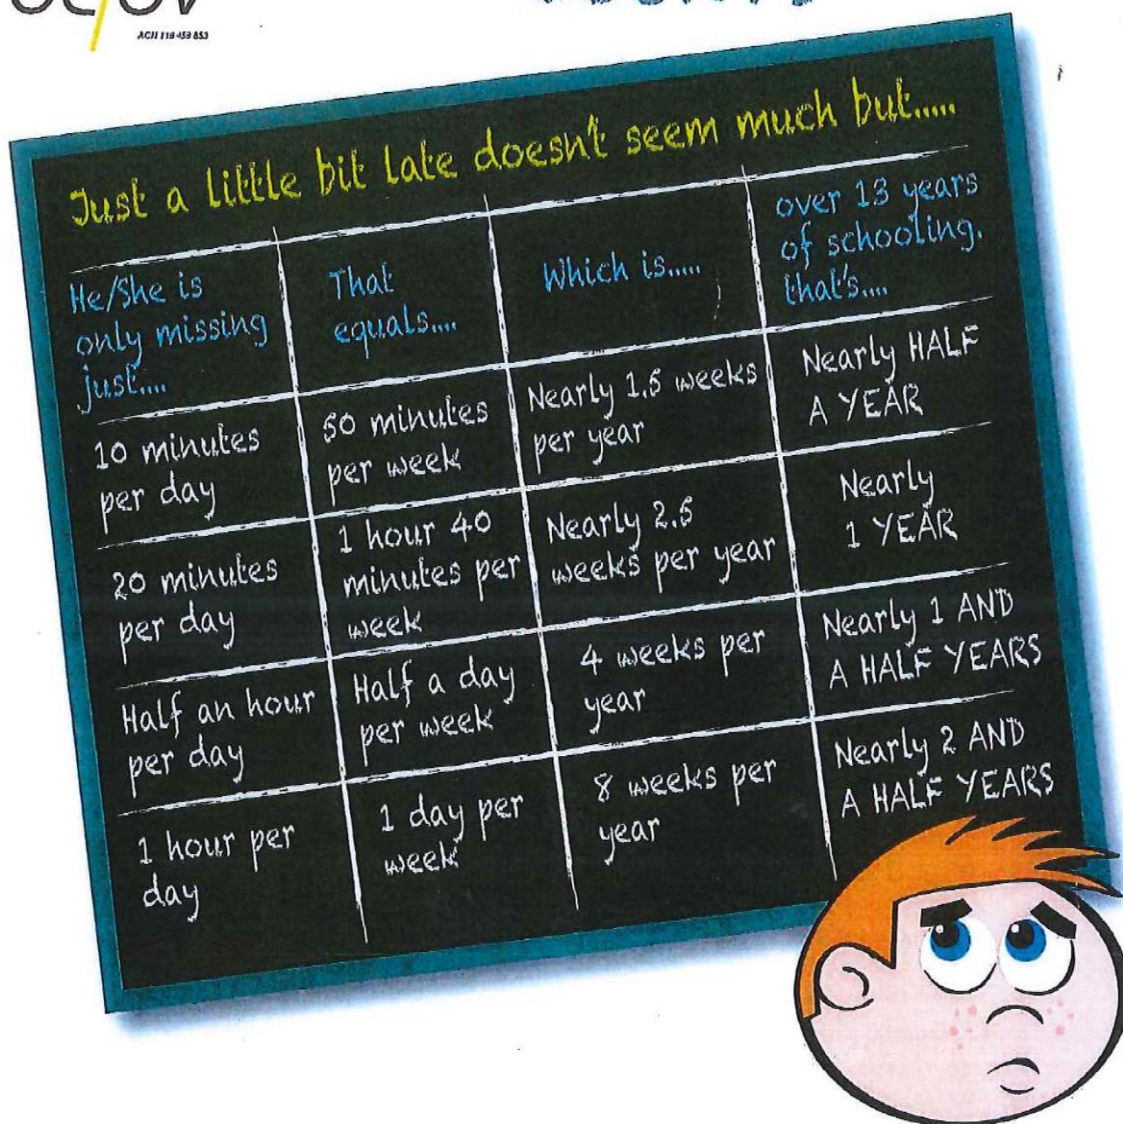 ACN 119 459 853
Just a little bit late doesn't seem much but.....
He/She is
only missing
just....
That
equals....
Which is.....
over 13 years
of schooling,
that's....
10 minutes
per day
50 minutes
per week
Nearly 1.5 weeks
per year
Nearly HALF
A YEAR
20 minutes
per day
1 hour 40
minutes per
week
Nearly 2.5
weeks per year
Nearly
1 YEAR
Half an hour
per day
Half a day
per week
4 weeks per
year
Nearly 1 AND
A HALF YEARS
1 hour per
day
1 day per
week
8 weeks per
year
Nearly 2 AND
A HALF YEARS